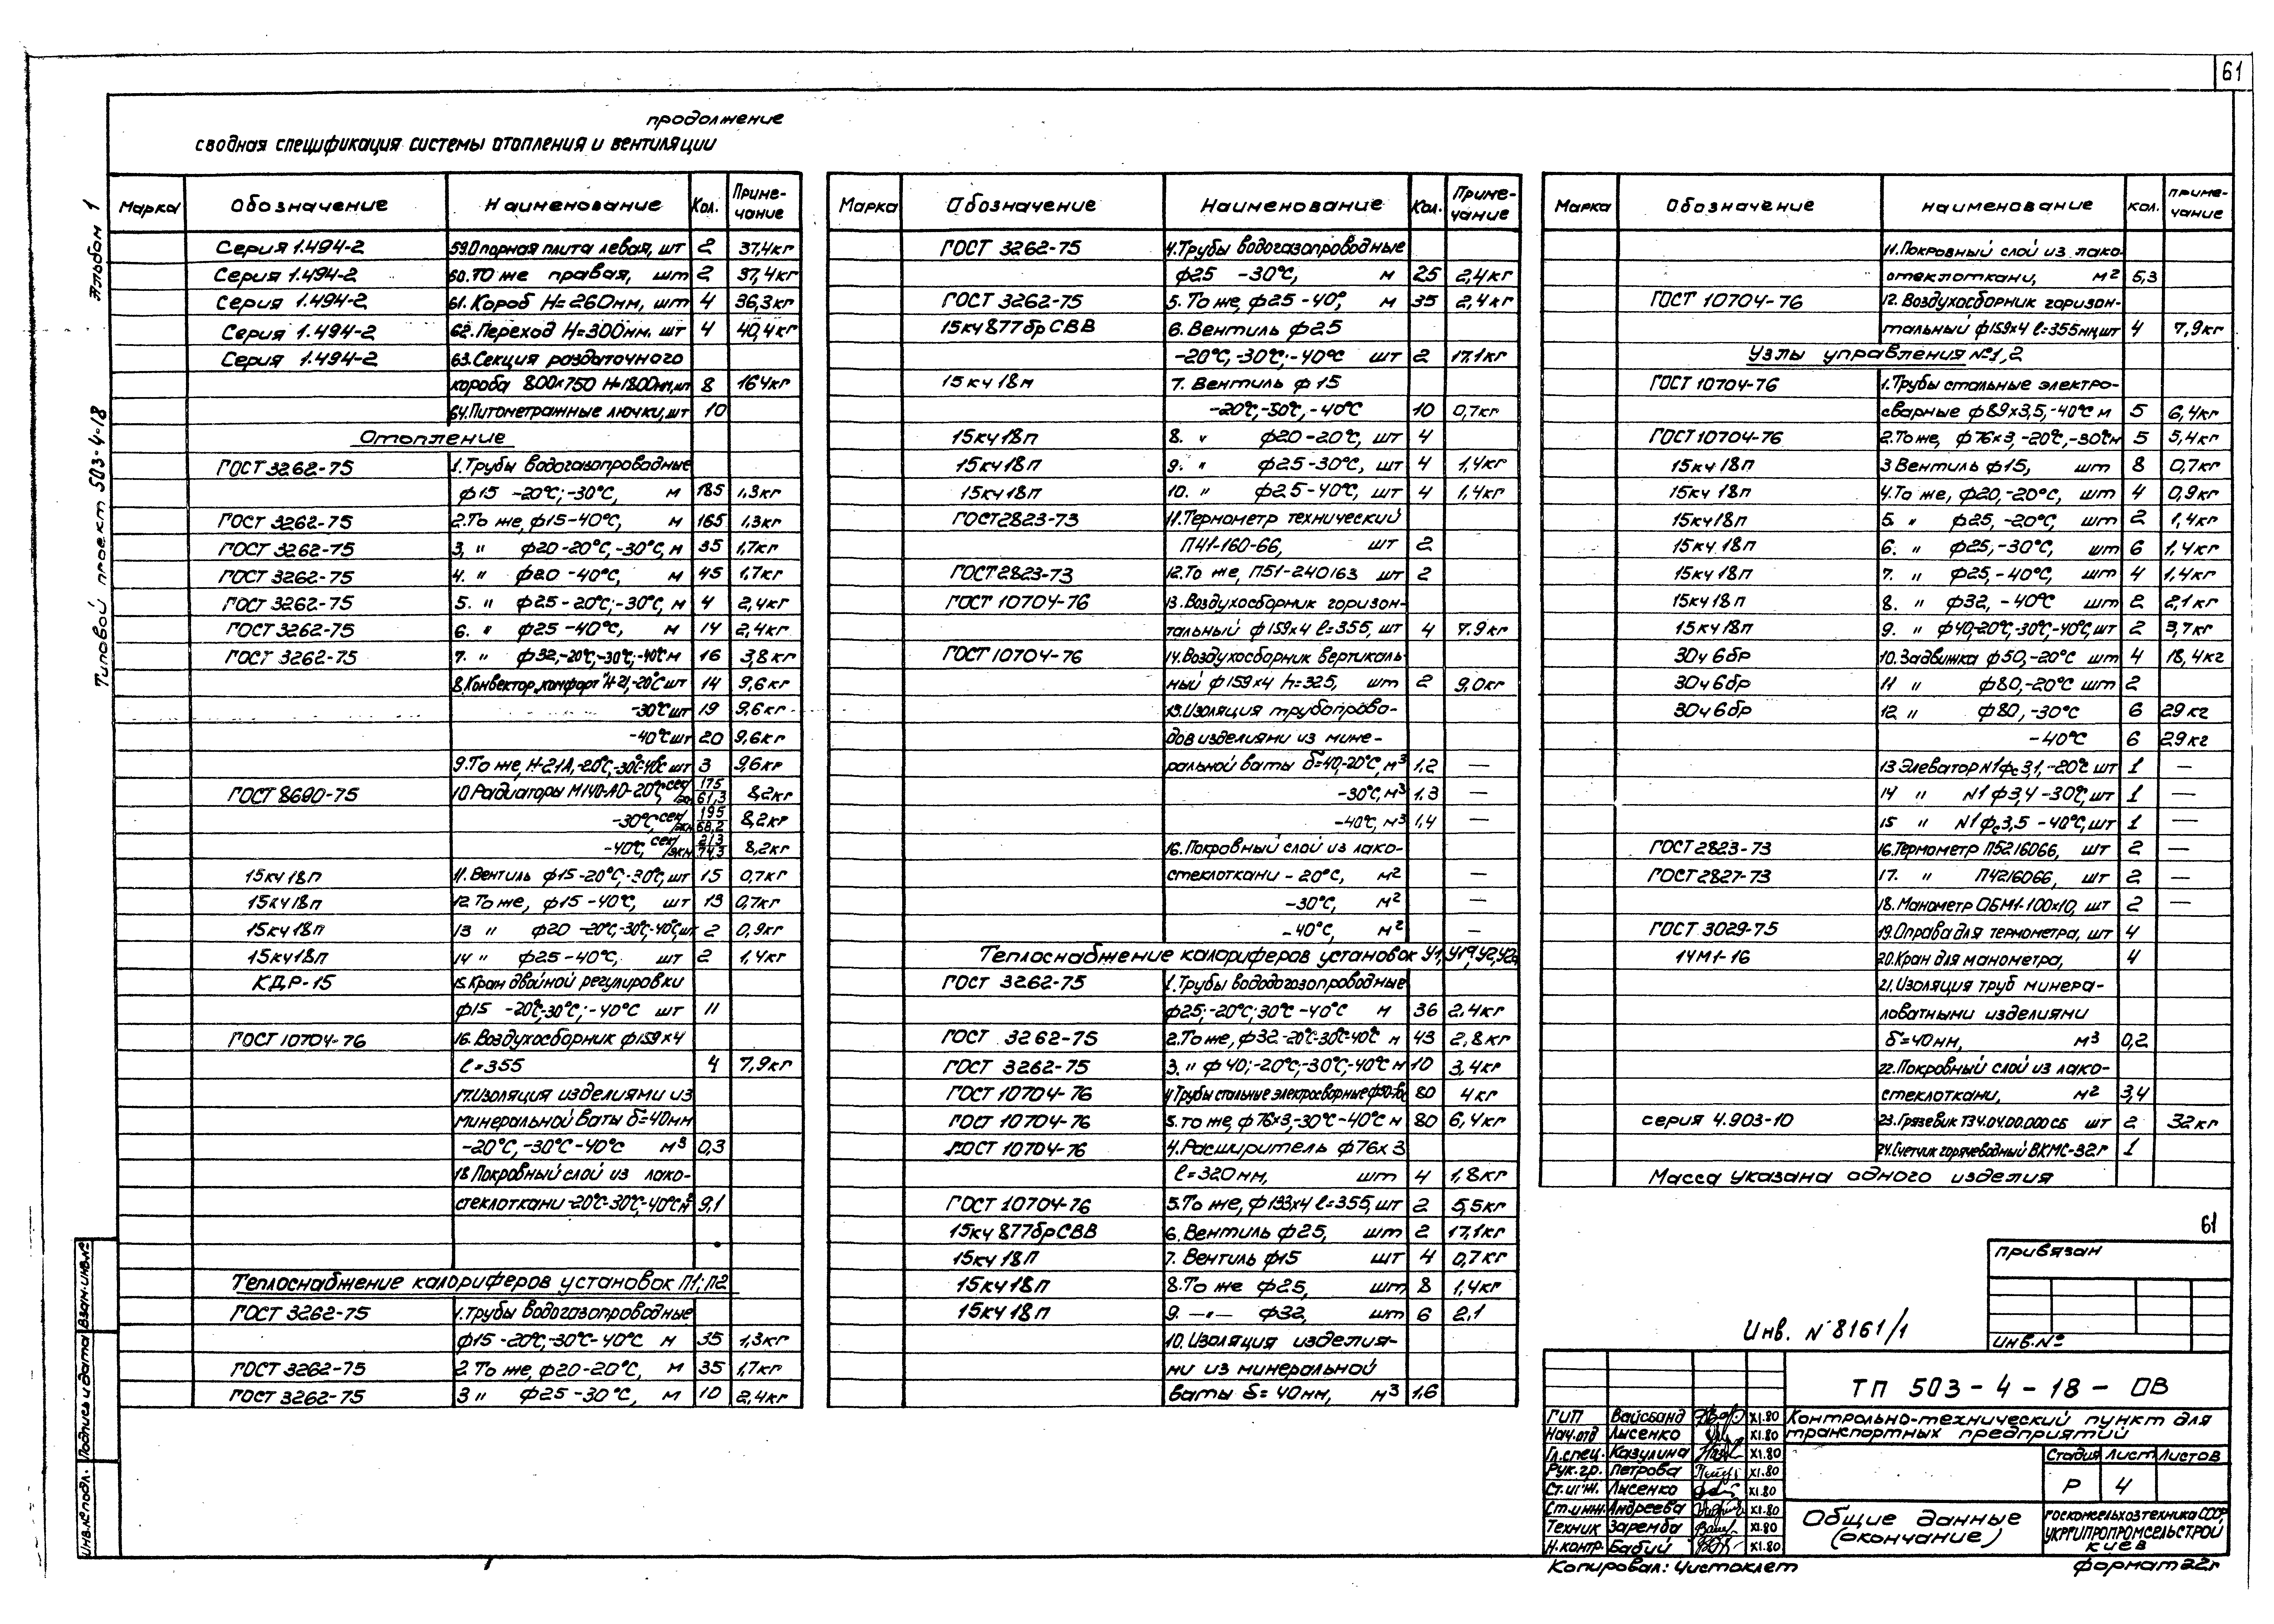 61
продолжение
сводная спецификация системы отопления и вентиляции
Альбом 1
Типовой проект 503-4-18
Марка Обозначение Наименование Кол. Приме-чание
Серия 1.494-2 59.Опорная плита левая, шт 2 37,4кг
Серия 1.494-2 60.То же правая, шт 2 37,4кг
Серия 1.494-2 61.Короб H=260мм, шт 4 36,3кг
Серия 1.494-2 62.Переход H=300мм. шт 4 40,4кг
Серия 1.494-2 63.Секция раздаточного
короба 800х750 H=1800мм,шт 8 164кг
64.Питометражные лючки,шт 10
Отопление
ГОСТ 3262-75 1.Трубы водогазопроводные
ф15 -20°С;-30°С, м 185 1,3кг
ГОСТ 3262-75 2.То же,ф15-40°С, м 165 1,3кг
ГОСТ 3262-75 3, " ф20-20°С,-30°С,м 35 1,7кг
ГОСТ 3262-75 4. " ф20 -40°С, м 45 1,7кг
ГОСТ 3262-75 5. " ф25-20°С;-30°С,м 4 2,4кг
ГОСТ 3262-75 6. " ф25-40°С, м 14 2,4кг
ГОСТ 3262-75 7. " ф32,-20°С;-30°С;-40°С м 16 3,8кг
8.Конвектор„комфорт"Н-21,-20°С шт 14 9,6кг
-30°С шт 19 9,6кг
-40°С шт 20 9,6кг
9.То же,Н-21А,-20°С,-30°С-40°С шт 3 9,6кг
ГОСТ 8690-75 10.Радиаторы М140-АО-20°С,сек/экм 175/61,3 8,2кг
-30°С,сек/экм 195/68,2 8,2кг
-40°С,сек/экм 213/74,3 8,2кг
15кч18п 11.Вентиль ф15-20°С,-30°С,шт 15 0,7кг
15кч18п 12.То же, ф15-40°С, шт 13 0,7кг
15кч18п 13 " ф20 -20°С,-30°С,-40°С,шт 2 0,9кг
15кч18п 14 " ф25-40°С, шт 2 1,4кг
КДР-15 15.Кран двойной регулировки
ф15 -20°С-30°С;-40°С шт 11
ГОСТ 10704-76 16.Воздухосборник ф159х4
ℓ=355 4 7,9кг
17.Изоляция изделиями из
минеральной ваты δ=40мм
-20°С,-30°С-40°С м³ 0,3
18.Покровный слой из лако-
стеклоткани-20°С-30°С,-40°С м² 9,1
Теплоснабжение калориферов установок П1;П2
ГОСТ 3262-75 1.Трубы водогазопроводные
ф15-20°С,-30°С-40°С м 35 1,3кг
ГОСТ 3262-75 2.То же,ф20-20°С, м 35 1,7кг
ГОСТ 3262-75 3 " ф25-30°С, м 10 2,4кг
Марка Обозначение Наименование Кол. Приме-чание
ГОСТ 3262-75 4.Трубы водогазопроводные
ф25 -30°С, м 25 2,4кг
ГОСТ 3262-75 5. То же,ф25-40°, м 35 2,4кг
15кч877брСВВ 6.Вентиль ф25
-20°С,-30°С;-40°С шт 2 17,1кг
15кч18п 7. Вентиль ф15
-20°С,-30°С,-40°С 10 0,7кг
15кч18п 8. " ф20-20°С, шт 4
15кч18п 9. " ф25-30°С, шт 4 1,4кг
15кч18п 10. " ф25-40°С, шт 4 1,4кг
ГОСТ2823-73 11.Термометр технический
П41-160-66, шт 2
ГОСТ2823-73 12.То же, П51-240163 шт 2
ГОСТ 10704-76 13.Воздухосборник горизон-
тальный ф159х4 ℓ=355, шт 4 7.9кг
ГОСТ10704-76 14.Воздухосборник вертикаль-
ный ф159х4 h=325, шт 2 9,0кг
15.Изоляция трубопрово-
дов изделиями из мине-
ральной ваты δ=40,-20°С,м³ 1,2 —
-30°С,м³ 1.3 —
-40°С,м³ 1,4 —
16.Покровный слой из лако-
стеклоткани -20°С, м² —
-30°С, м² —
-40°С, м² —
Теплоснабжение калориферов установок У1,У1а,У2,У2а
ГОСТ 3262-75 1.Трубы вододогозопроводные
ф25;-20°С;30°С -40°С м 36 2,4кг
ГОСТ 3262-75 2.То же,ф32-20°С-30°С-40°С м 43 2,8кг
ГОСТ 3262-75 3. " ф40;-20°С,-30°С,-40°С м 10 3,4кг
ГОСТ 10704-76 4Трубы стальные электросварные 80 4кг
ГОСТ 10704-76 5.то же,ф76х3,-30°С-40°С м 80 6,4кг
ГОСТ 10704-76 4.Расширитель ф76х3
ℓ=320мм, шт 4 1,8кг
ГОСТ 10704-76 5.То же,ф133х4 ℓ=355,шт 2 5,5кг
15кч877брСВВ 6.Вентиль ф25, шт 2 17,1кг
15кч18п 7. Вентиль ф15 шт 4 0,7кг
15кч18п 8.То же ф25, шт 8 1,4кг
15кч18п 9. —"— ф32, шт 6 2,1
10.Изоляция изделия-
ми из минеральной
ваты δ=40мм, м³ 1,6
Марка Обозначение Наименование кол. приме-чание
11.Покровный слой из лако-
стеклоткани, м² 5,3
ГОСТ 10704-76 12.Воздухосборник горизон-
тальный ф159х4 ℓ=355мм,шт 4 7,9кг
Узлы управления №1,2
ГОСТ 10704-76 1.Трубы стальные электро-
сварные ф89х3,5,-40°С м 5 6,4кг
ГОСТ10704-76 2.То же, ф76х3,-20°С,-30°С м 5 5,4кг
15кч18п 3 Вентиль ф15, шт 8 0,7кг
15кч18п 4.То же, ф20,-20°С, шт 4 0,9кг
15кч18п 5. " ф25, -20°С, шт 2 1,4кг
15кч18п 6. " ф25,-30°С, шт 6 1,4кг
15кч18п 7. " ф25,-40°С, шт 4 1,4кг
15кч18п 8. " ф32, -40°С шт 2 2,1кг
15кч18п 9. " ф40,-20°С,-30°С,-40°С,шт 2 3,7кг
30ч6бр 10.Задвижка ф50,-20°С шт 4 18,4кг
30ч6бр 11 " ф80,-20°С шт 2
30ч6бр 12 " ф80,-30°С 6 29кг
-40°С 6 29кг
13 Элеватор №1ф_с3,1,-20°С шт 1 —
14 " №1 ф3,4 -30°С,шт 1 —
15 " №1ф_с3,5 -40°С,шт 1 —
ГОСТ2823-73 16.Термометр П5216066, шт 2 —
ГОСТ2827-73 17. " П4216066, шт 2 —
18.Манометр ОБМ1-100х10, шт 2 —
ГОСТ 3029-75 19.Оправа для термометра, шт 4
14М1-16 20.Кран для манометра, 4
21.Изоляция труб минера-
ловатными изделиями
δ=40мм, м³ 0,2
22.Покровный слой из лако-
стеклоткани, м² 3,4
серия 4.903-10 23.Грязевик Т34.04.00.000СБ шт 2 32кг
24.Счетчик горячеводный ВКМС-32Г 1
Масса указана одного изделия
61
привязан
Инв.№
Инв. №8161/1
ТП 503-4-18-ОВ
Контрольно-технический пункт для
транспортных предприятий
ГИП Вайсбанд XI.80
Нач.отд Лысенко XI.80
Гл.спец. Казулина XI.80
Рук.гр. Петрова XI.80
Ст.инж. Лысенко XI.80
Ст.инж. Андреева XI.80
Техник Заремба XI.80
Н.контр. Бабий XI.80
Стадия Лист Листов
Р 4
Общие данные
(окончание)
Госкомсельхозтехника СССР
УКРГИПРОПРОМСЕЛЬСТРОЙ
Киев
Копировал: Чистоклет
формат 22г
Инв.№подл. Подпись и дата Взам.инв.№